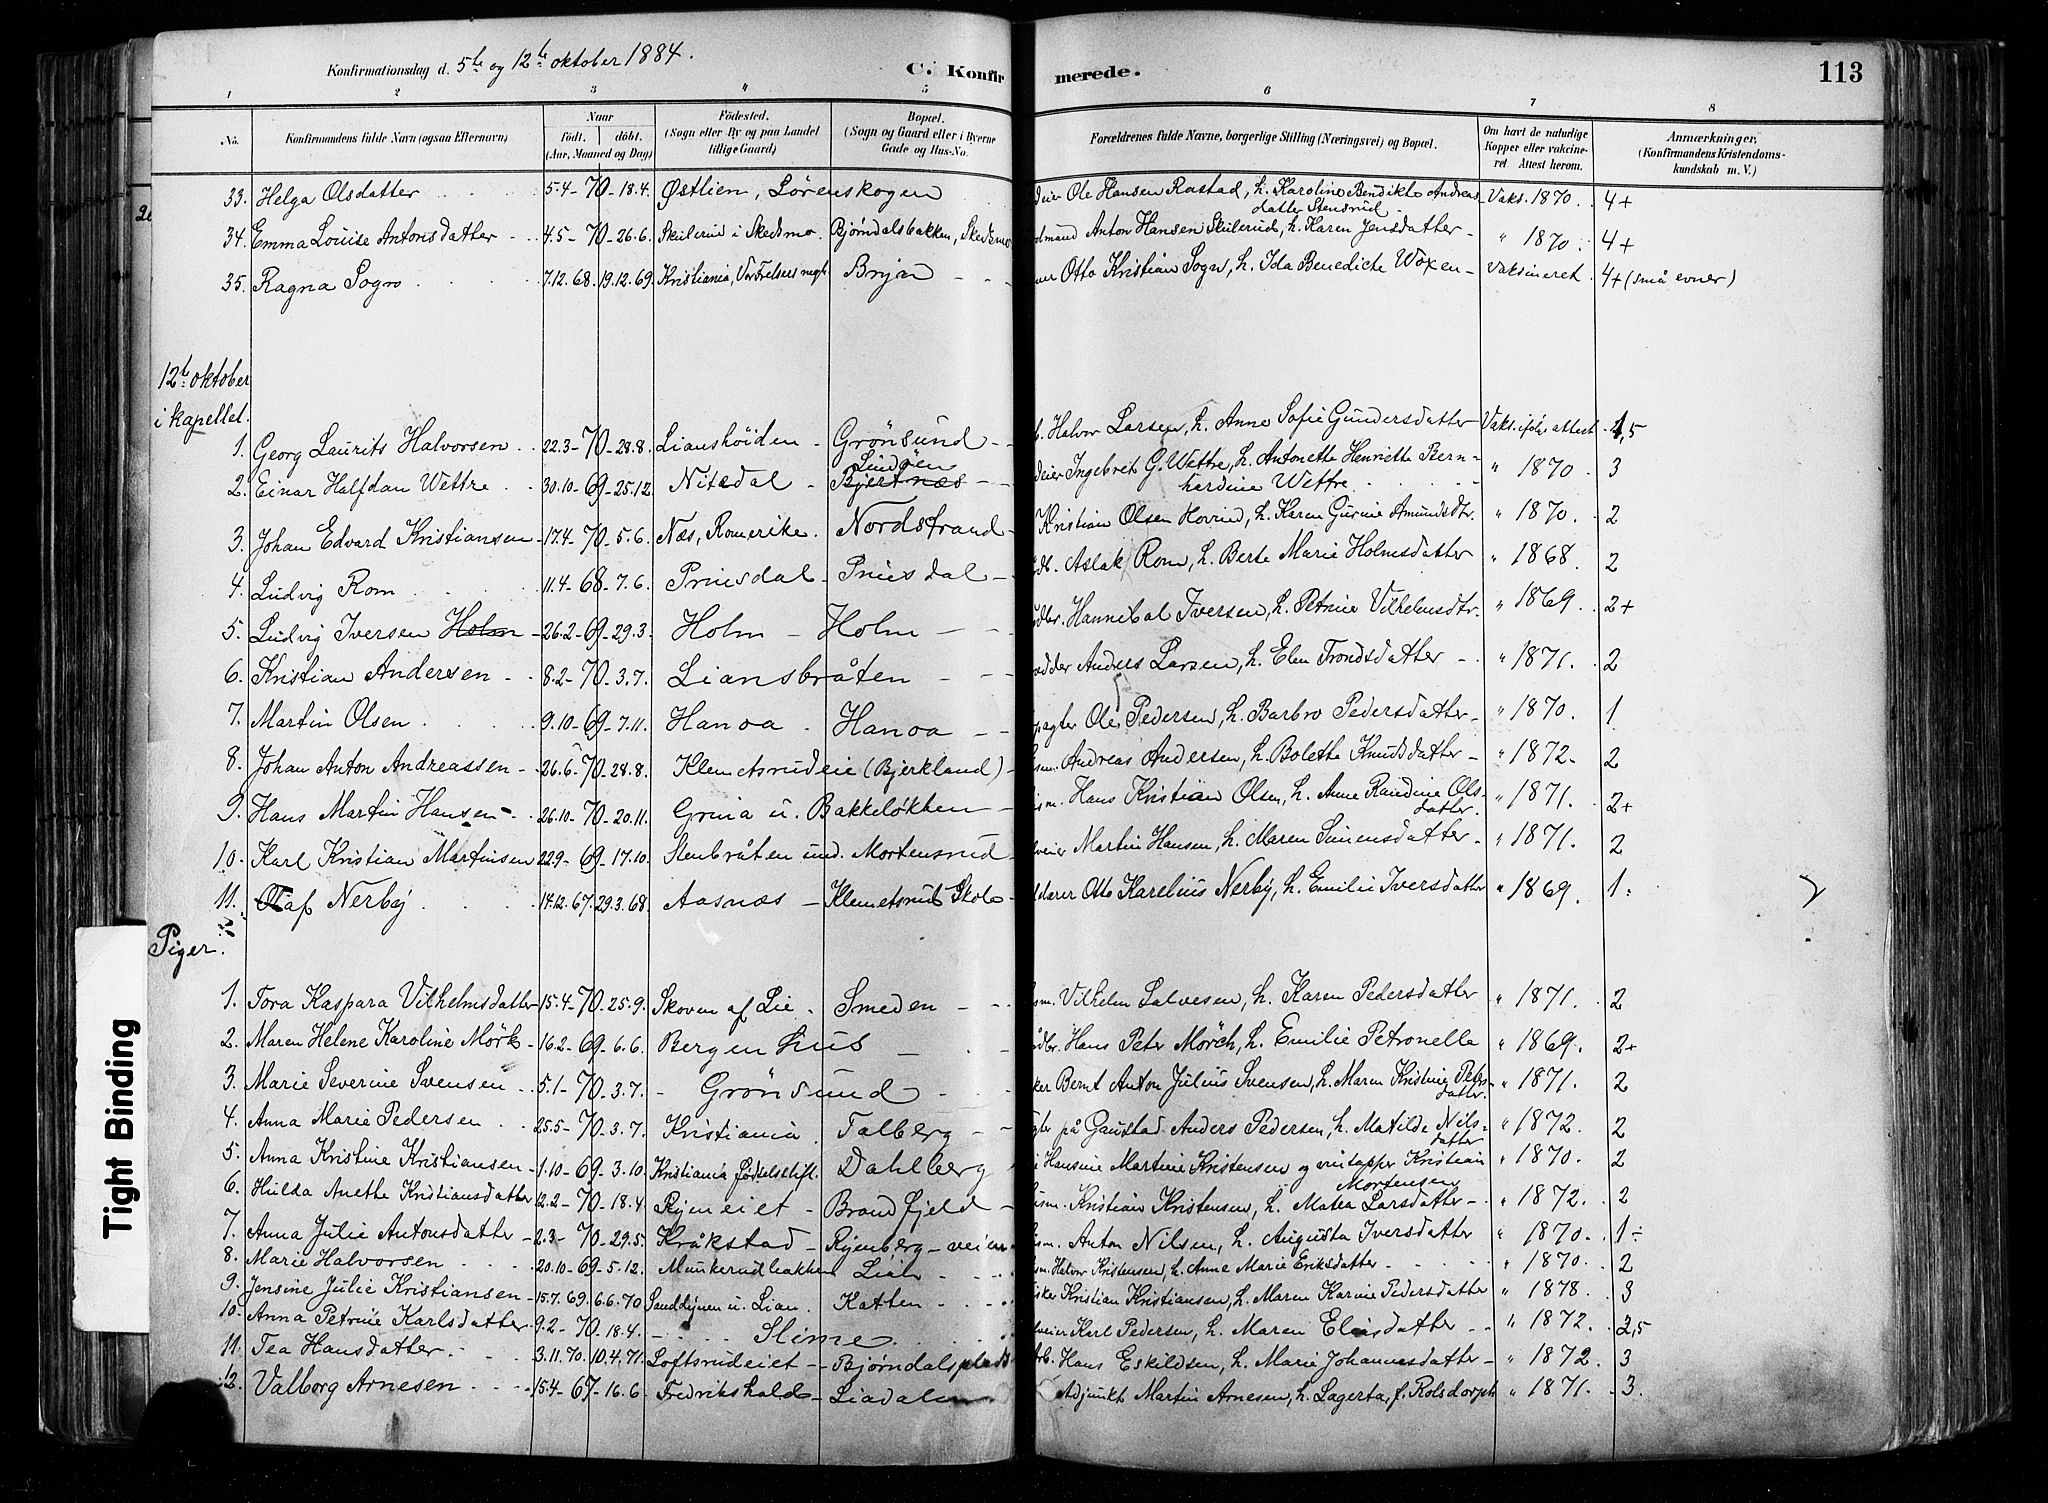 Konfirmationsdag d. 5te og 12te oktober 1884.
C. Konfirmerede.
113
1 2 3 4 5 6 7 8
No. Konfirmandens fulde Navn (ogsaa Efternavn) Naar født. døbt. (Aar, Maaned og Dag) Fødested. (Sogn eller By og paa Landet tillige Gaard) Bopæl. (Sogn og Gaard eller i Byerne Gade og Hus-No. Forældrenes fulde Navne, borgerlige Stilling (Næringsvei) og Bopæl. Om havt de naturlige Kopper eller vakcineret. Attest herom. Anmærkninger, (Konfirmandens Kristendomskundskab m. V.)
33. Helga Olsdatter 5.4-70-18.4. Østlien, Lörenskogen Ole Hansen Rastad, h. Karoline Bendikte Andreasdatter Stensrud Vaks. 1870. 4+
34. Emma Louise Antonsdatter 4.5-70-26.6. Skulerud i Skedsmo. Bjørndalsbakken, Skedsmo Anton Hansen Skulerud, h. Karen Jensdatter " 1870. 4+
35. Ragna Sogn 7.12.68. 19.12.69. Kristiania, Vor Frelsers megh. Bryn Otto Kristian Sogn, h. Ida Benedicte Woxen Vaksineret 4+ (små evner)
12te oktober
i kapellet.
1. Georg Laurits Halvorsen 22.3-70-28.8. Lianshöiden Grönsund Halvor Larsen, h. Anne Sofie Gundersdatter Vaks. iføl. attest 1,5
2. Einar Halfdan Wettre 30.10-69-25.12. Nitedal Bjertnæs Lindøen Ingebret G. Wettre, h. Antonette Henriette Bernhardine Wettre " 1870 3
3. Johan Edvard Kristiansen 17.4-70-5.6. Næs, Romerike. Nordstrand Kristian Olsen Hovind, h. Karen Gurine Amundsdtr. " 1870. 2
4. Ludvig Rom 11.4-68-7.6. Prinsdal Prinsdal Aslak Rom, h. Berte Marie Holmsdatter " 1868. 2
5. Ludvig Iversen Holm 26.2-69-29.3. Holm Holm Hannibal Iversen, h. Petrine Vilhelmsdtr. " 1869. 2+
6. Kristian Andersen 8.2-70-3.7. Liansbråten Anders Larsen, h. Elen Trondsdatter " 1871. 2
7. Martin Olsen 9.10-69-7.11. Hanoa Hanoa Ole Pedersen, h. Barbro Pedersdatter " 1870. 1
8. Johan Anton Andreassen 26.6-70-28.8. Klemetsrudeie (Bjerkland) Andreas Andersen, h. Bolette Knudsdatter " 1872. 2
9. Hans Martin Hansen 26.10-70-20.11. Grina u. Bakkeløkken Hans Kristian Olsen, h. Anne Randine Olsdatter. " 1871. 2+
10. Karl Kristian Martinsen 22.9-69-17.10. Stenbråten und. Mortensrud Martin Hansen, h. Maren Simensdatter " 1871. 2
11. Olaf Nerby 14.12.67. 29.3.68. Aasnæs Klemetsrud Skole Otto Karelius Nerby, h. Emilie Iversdatter " 1869. 1:
Piger.
1. Tora Kaspara Vilhelmsdatter 15.4-70-25.9. Skoven af Lie Smeden Vilhelm Salvesen, h. Karen Pedersdatter " 1871. 2
2. Maren Helene Karoline Mörk 16.2-69-6.6. Bergenhus Hans Peter Mörch, h. Emilie Petronella " 1869. 2+
3. Marie Severine Svensen 5.1-70-3.7. Grönsund Bernt Anton Julius Svensen, h. Maren Kristine Pedersdatter. " 1871. 2
4. Anna Marie Pedersen 25.5-70-3.7. Kristiania Talberg på Gaustad Anders Pedersen, h. Matilde Nilsdatter " 1872. 2
5. Anna Kristine Kristiansen 1.10-69-3.10. Kristiania fødselsstift. Dahlberg Hansine Martine Kristensen og vintapper Kristian Mortensen " 1870. 2
6. Hulda Anethe Kristiansdatter 12.2-70-18.4 Ryeneiet Brandfjeld Kristian Kristensen, h. Matea Larsdatter " 1872. 2
7. Anna Julie Antonsdatter 2.3-70-29.5. Kråkstad Ryenberg-veien Anton Nilsen, h. Augusta Iversdatter " 1870. 1÷
8. Marie Halvorsen 20.10-69-5.12. Munkerudbakken Lien Halvor Kristensen, h. Anne Marie Eriksdatter " 1870. 2
9. Jensine Julie Kristiansen 15.7.69. 6.6.70 Sanddynen u. Lian. Katten Kristian Kristiansen, h. Maren Karine Pedersdatter " 1878. 3
10. Anna Petrine Karlsdatter 9.2-70-18.4. Slime Karl Pedersen, h. Maren Eliasdatter " 1872. 2,5
11. Tea Hansdatter 3.11.70. 10.4.71. Loftsrudeiet Bjørndalsplads Hans Eskildsen, h. Marie Johannesdatter " 1872. 3
12. Valborg Arnesen 15.4-67-16.6. Fredrikshald Liadalen Adjunkt Martin Arnesen, h. Lagerta, f. Rolsdorph " 1871. 3.
Tight Binding